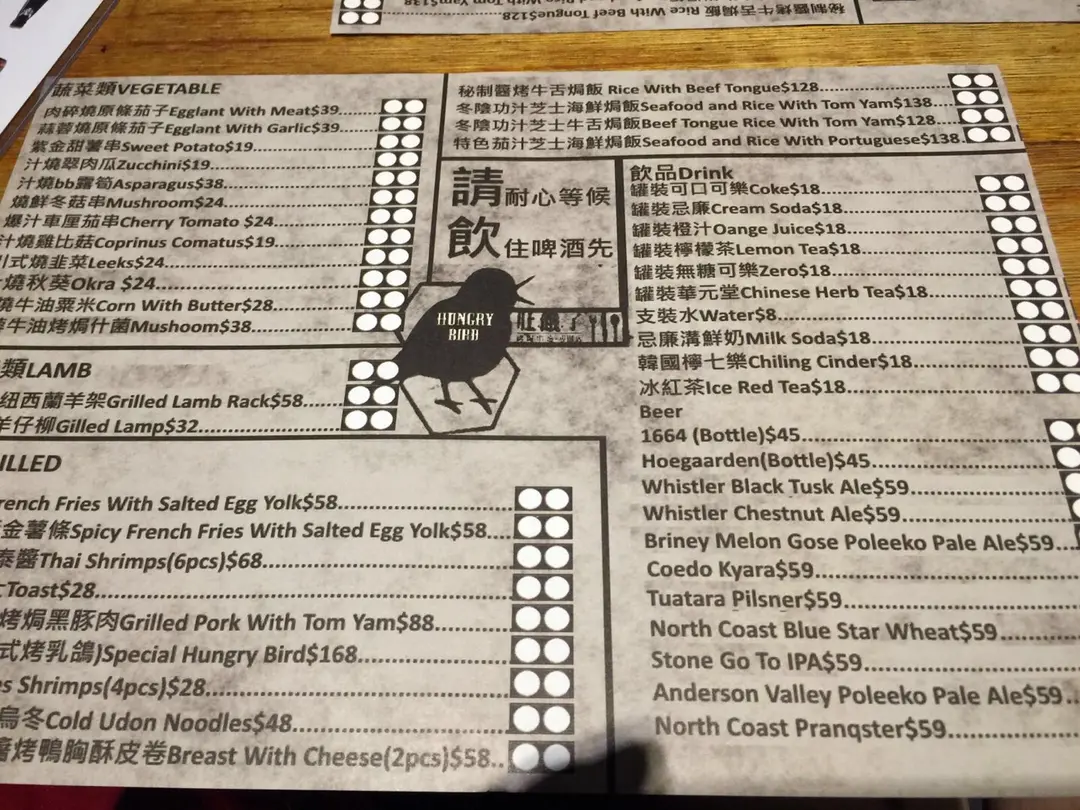 秘制醬烤牛舌焗飯 Rice With Beef Tongue$128
蔬菜類VEGETABLE
肉碎燒原條茄子Egglant With Meat$39
蒜蓉燒原條茄子Egglant With Garlic$39
紫金甜薯串Sweet Potato$19
汁燒翠肉瓜Zucchini$19
汁燒bb露筍Asparagus$38
燒鮮冬菇串Mushroom$24
爆汁車厘茄串Cherry Tomato $24
汁燒雞比菇Coprinus Comatus$19
式燒韭菜Leeks$24
燒秋葵Okra $24
燒牛油粟米Corn With Butter$28
牛油烤焗什菌Mushoom$38
類LAMB
纽西蘭羊架Grilled Lamb Rack$58
羊仔柳Gilled Lamp$32
ILLED
rench Fries With Salted Egg Yolk$58
金薯條Spicy French Fries With Salted Egg Yolk$58
泰醬Thai Shrimps(6pcs)$68
Toast$28
烤焗黑豚肉Grilled Pork With Tom Yam$88
式烤乳鴿)Special Hungry Bird$168
es Shrimps(4pcs)$28
烏冬Cold Udon Noodles$48
醬烤鴨胸酥皮卷Breast With Cheese(2pcs)$58
秘制醬烤牛舌焗飯 Rice With Beef Tongue$128
冬陰功汁芝士海鮮焗飯Seafood and Rice With Tom Yam$138
冬陰功汁芝士牛舌焗飯Beef Tongue Rice With Tom Yam$128
特色茄汁芝士海鮮焗飯Seafood and Rice With Portuguese$138
請耐心等候
飲住啤酒先
HUNGRY
BIRD
肚餓了
飲品Drink
罐裝可口可樂Coke$18
罐裝忌廉Cream Soda$18
罐裝橙汁Oange Juice$18
罐裝檸檬茶Lemon Tea$18
罐裝無糖可樂Zero$18
罐裝華元堂Chinese Herb Tea$18
支裝水Water$8
忌廉溝鮮奶Milk Soda$18
韓國檸七樂Chiling Cinder$18
冰紅茶Ice Red Tea$18
Beer
1664 (Bottle)$45
Hoegaarden(Bottle)$45
Whistler Black Tusk Ale$59
Whistler Chestnut Ale$59
Briney Melon Gose Poleeko Pale Ale$59
Coedo Kyara$59
Tuatara Pilsner$59
North Coast Blue Star Wheat$59
Stone Go To IPA$59
Anderson Valley Poleeko Pale Ale$59
North Coast Pranqster$59